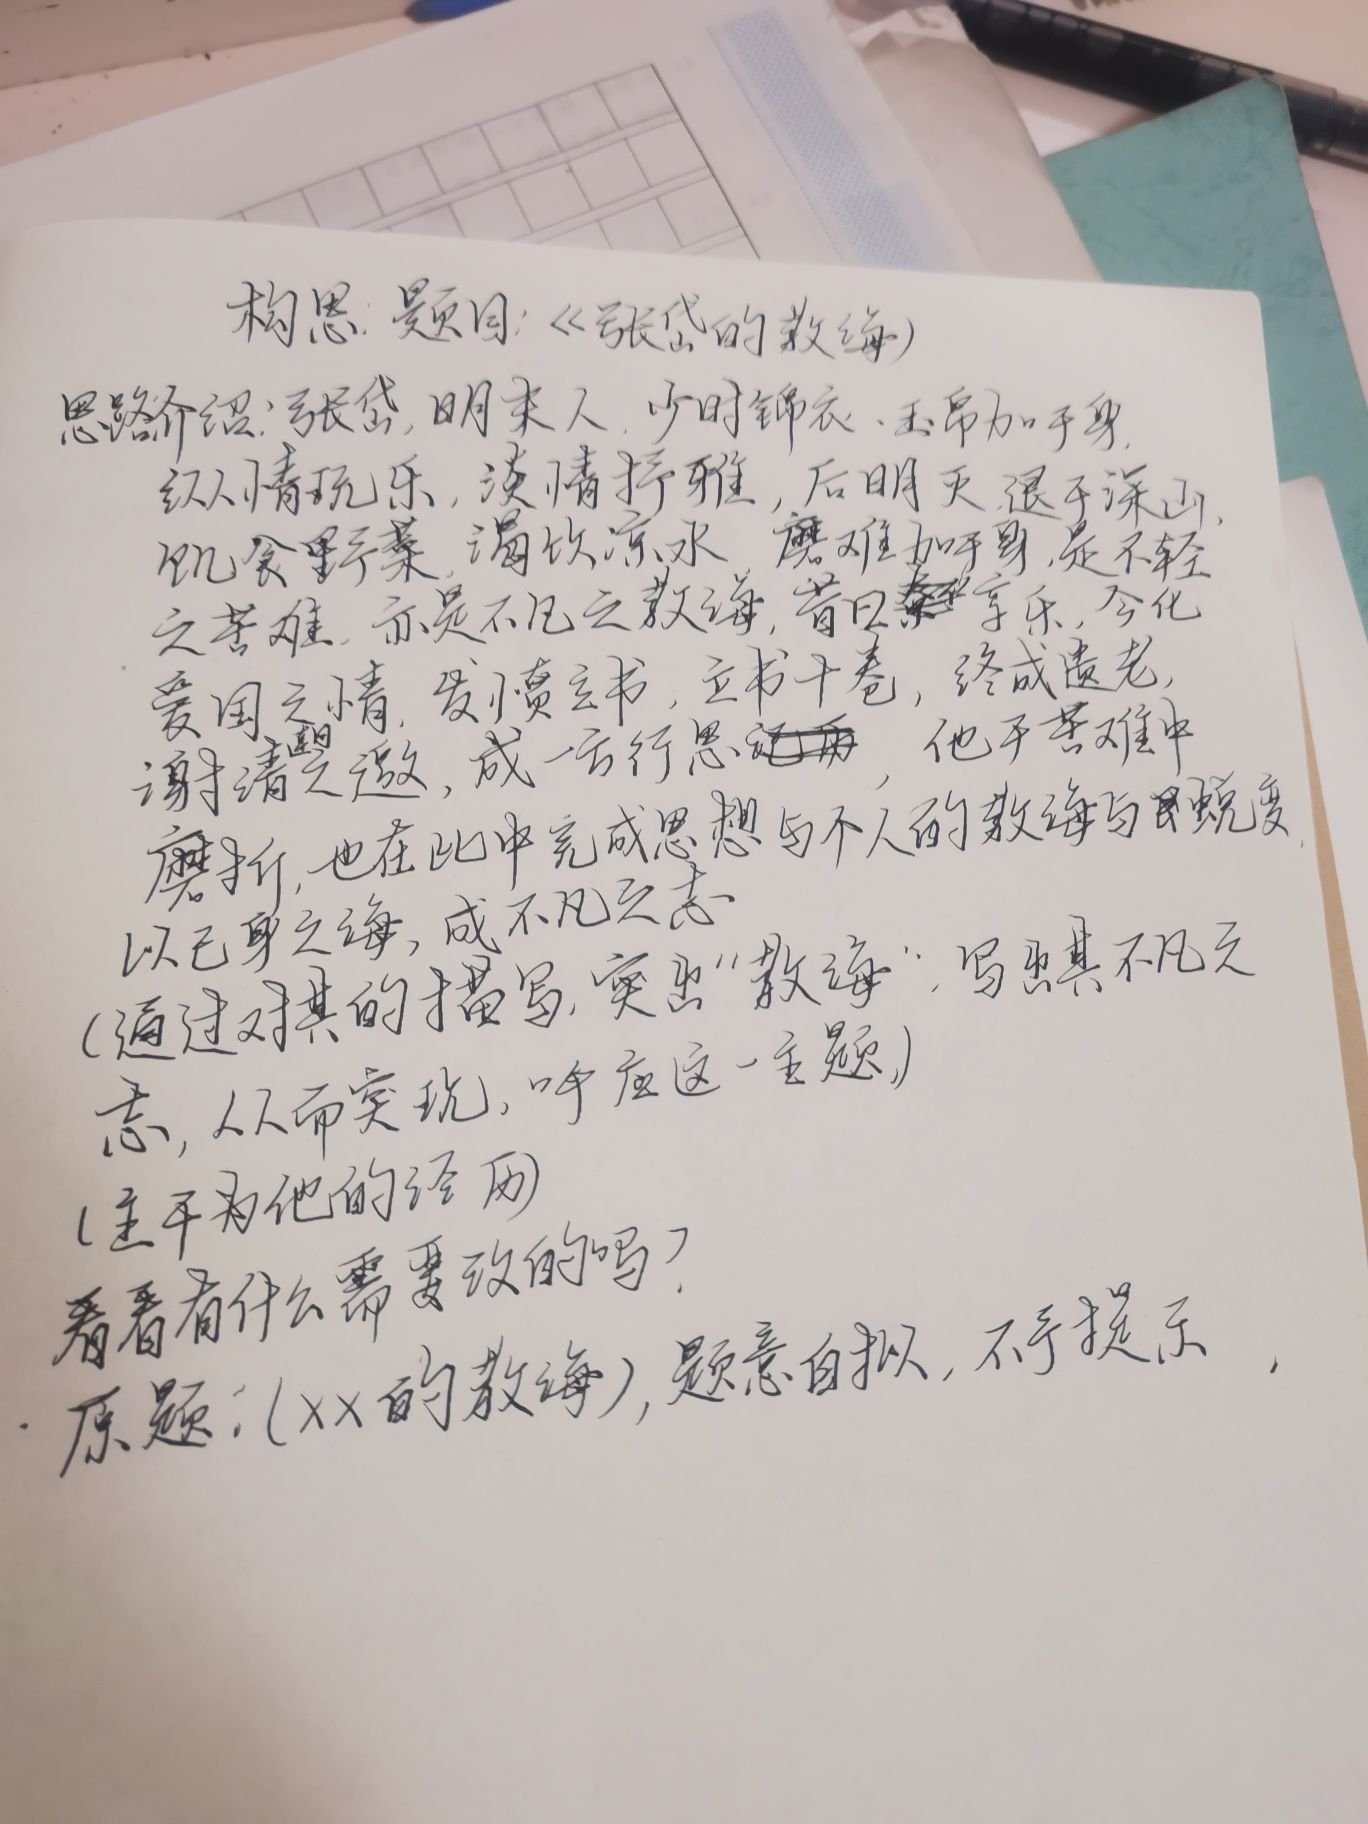 构思:题目:《张岱的教诲》
思路介绍:张岱,明末人,少时锦衣、玉帛加于身,
纵情玩乐,淡情抒雅,后明灭,退于深山,
饥食野菜,渴饮凉水,磨难加于身,是不轻
之苦难,亦是不凡之教诲,昔日享乐,今化
爱国之情,发愤立书,立书十卷,终成遗老,
谢清廷之邀,成一舌行思,他于苦难中
磨折,也在此中完成思想与个人的教诲与蜕变,
以己身之诲,成不凡之志
(通过对其的描写,突出"教诲",写出其不凡之
志,从而实现,呼应这一主题)
(主干为他的经历)
看看有什么需要改的吗?
原题:(XX的教诲),题意自拟,不予提示,